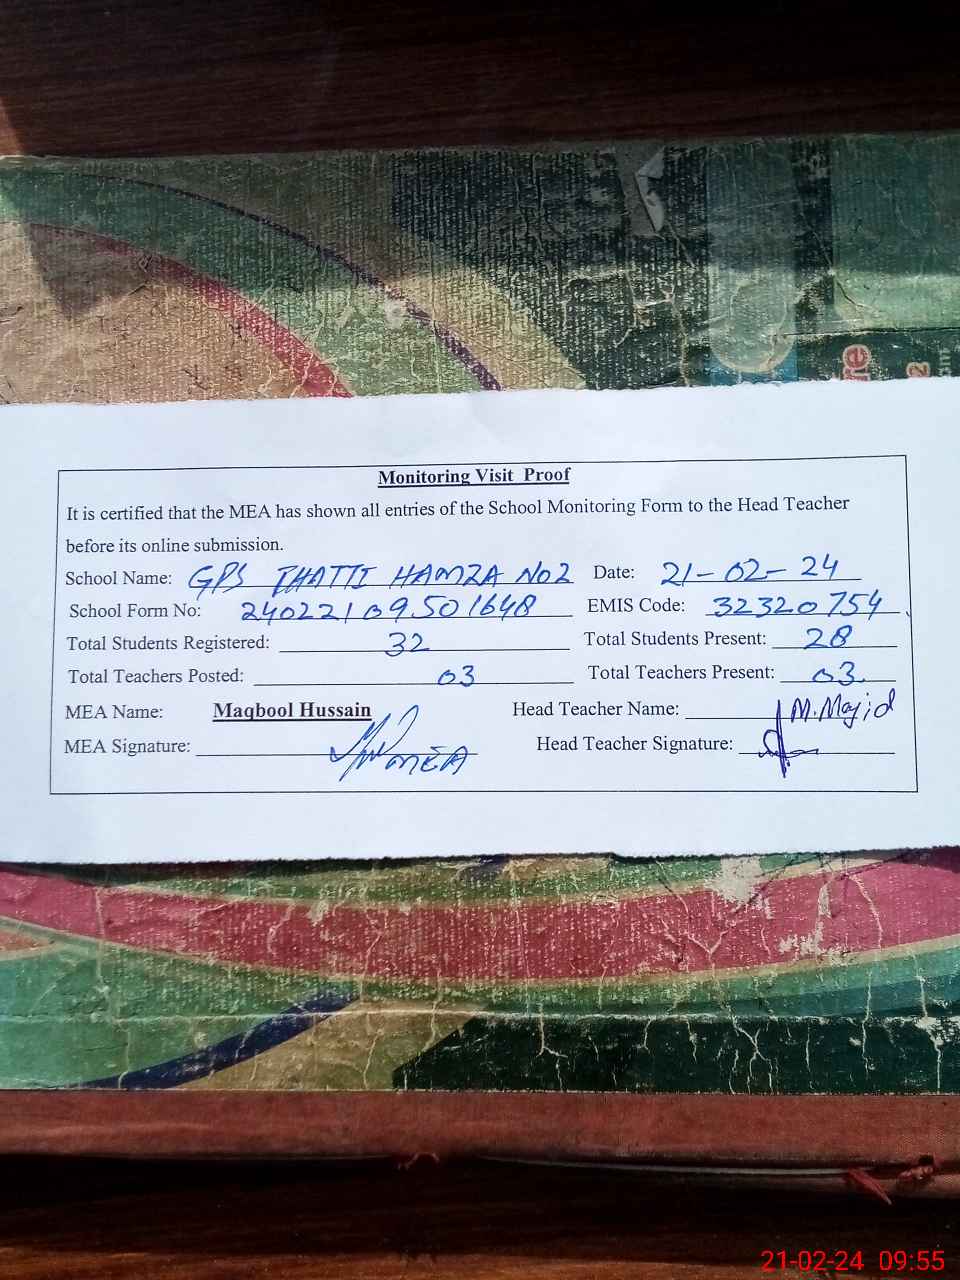 re
2
Monitoring Visit Proof
It is certified that the MEA has shown all entries of the School Monitoring Form to the Head Teacher
before its online submission.
School Name: GPS THATTI HAMZA No2 Date: 21-02-24
School Form No: 24022109501648 EMIS Code: 32320754
Total Students Registered: 32 Total Students Present: 28
Total Teachers Posted: 03 Total Teachers Present: 03
MEA Name: Maqbool Hussain Head Teacher Name: M.Majid
MEA Signature: MEA Head Teacher Signature:
21-02-24 09:55